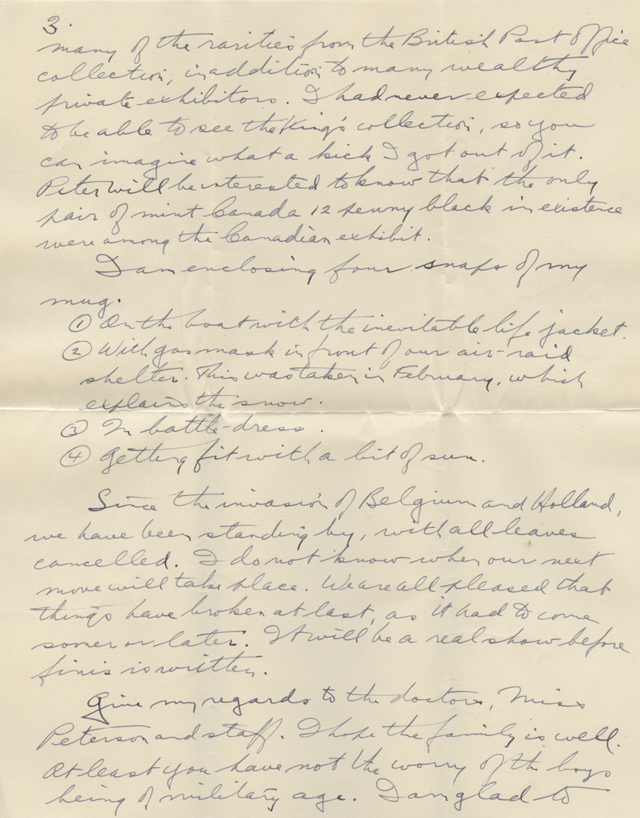 3.
many of the rarities from the British Post Office
collection, in addition to many wealthy
private exhibitors. I had never expected
to be able to see the King's collection, so you
can imagine what a kick I got out of it.
Peter will be interested to know that the only
pair of mint Canada 12 penny black in existence
were among the Canadian exhibit.
I am enclosing four snaps of my
mug.
① On the boat with the inevitable life jacket.
② With gas mask in front of our air-raid
shelter. This was taken in February, which
explains the snow.
③ In battle-dress.
④ Getting fit with a bit of sun.
Since the invasion of Belgium and Holland,
we have been standing by, with all leaves
cancelled. I do not know when our next
move will take place. We are all pleased that
things have broken at last, as it had to come
sooner or later. It will be a real show before
finis is written.
Give my regards to the doctors, Miss
Peterson and staff. I hope the family is well.
At least you have not the worry of the boys
being of military age. I am glad to